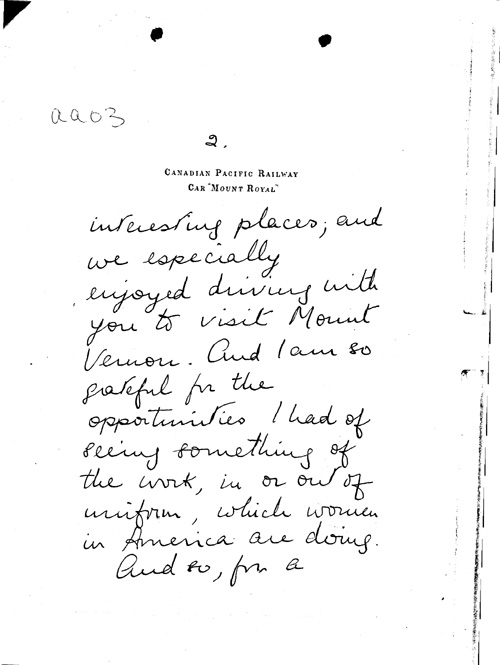 aa03
2.
CANADIAN PACIFIC RAILWAY
CAR "MOUNT ROYAL"
interesting places; and
we especially
enjoyed driving with
you to visit Mount
Vernon. And I am so
grateful for the
opportunities I had of
seeing something of
the work, in or out of
uniform, which women
in America are doing.
And so, for a